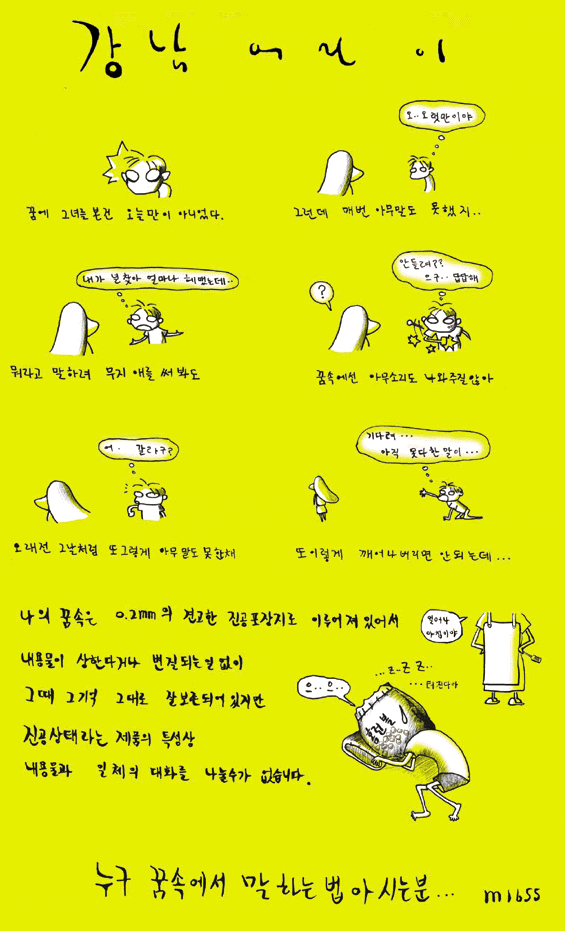 강남 어린이
오..오랫만이야
꿈에 그녀를 본건 오늘만이 아니었다.
그런데 매번 아무말도 못했지..
내가 널찾아 얼마나 헤맸는데..
?
안들려??
으구.. 답답해
뭐라고 말하려 무지 애를 써봐도
꿈속에선 아무소리도 나와주질않아
어. 갈라구?
기다려...
아직 못다한 말이...
오래전 그날처럼 또그렇게 아무말도 못한채
또이렇게 깨어나버리면 안되는데...
나의 꿈속은 0.2mm의 견고한 진공포장지로 이루어져있어서
내용물이 상한다거나 변질되는일 없이
그때 그기억 그대로 잘보존되어 있지만
진공상태라는 제품의 특성상
내용물과 일체의 대화를 나눌수가 없습니다.
일어나
아침이야
...z-z z..
...터진다아
으..으..
누구 꿈속에서 말하는법아시는분...
m1655